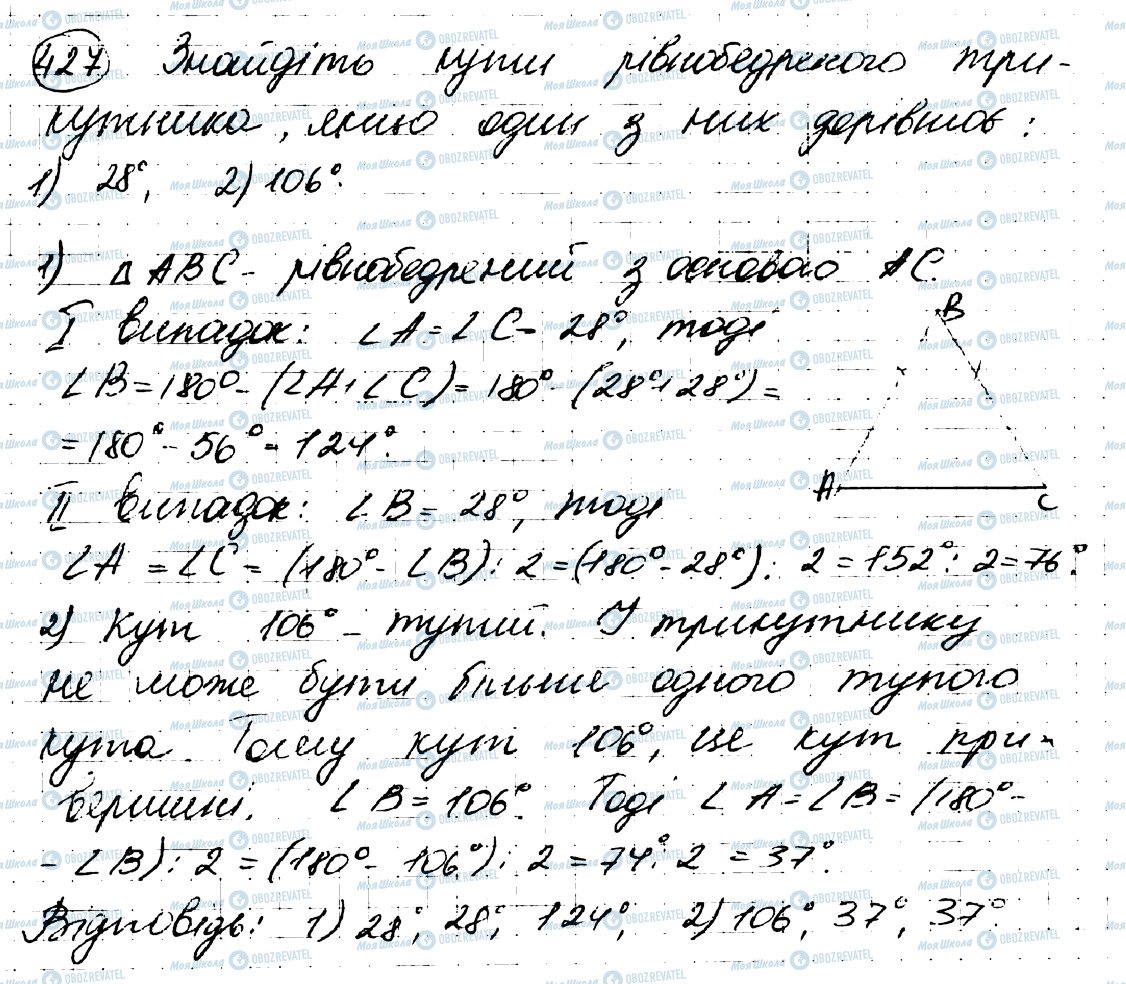 427 Знайдіть кути рівнобедреного три-
кутника, якщо один з них дорівнює:
1) 28°, 2) 106°.
1) △ABC - рівнобедрений з основою AC.
I випадок: ∠A = ∠C = 28°, тоді
B
∠B = 180° - (∠A + ∠C) = 180° - (28° + 28°) =
= 180° - 56° = 124°.
A C
II випадок: ∠B = 28°, тоді
∠A = ∠C = (180° - ∠B) : 2 = (180° - 28°) : 2 = 152° : 2 = 76°.
2) Кут 106° - тупий. У трикутнику
не може бути більше одного тупого
кута. Тому кут 106°, це кут при
вершині. ∠B = 106°. Тоді ∠A = ∠B = (180° -
- ∠B) : 2 = (180° - 106°) : 2 = 74° : 2 = 37°.
Відповідь: 1) 28°, 28°, 124°, 2) 106°, 37°, 37°.
МояШкола OBOZREVATEL